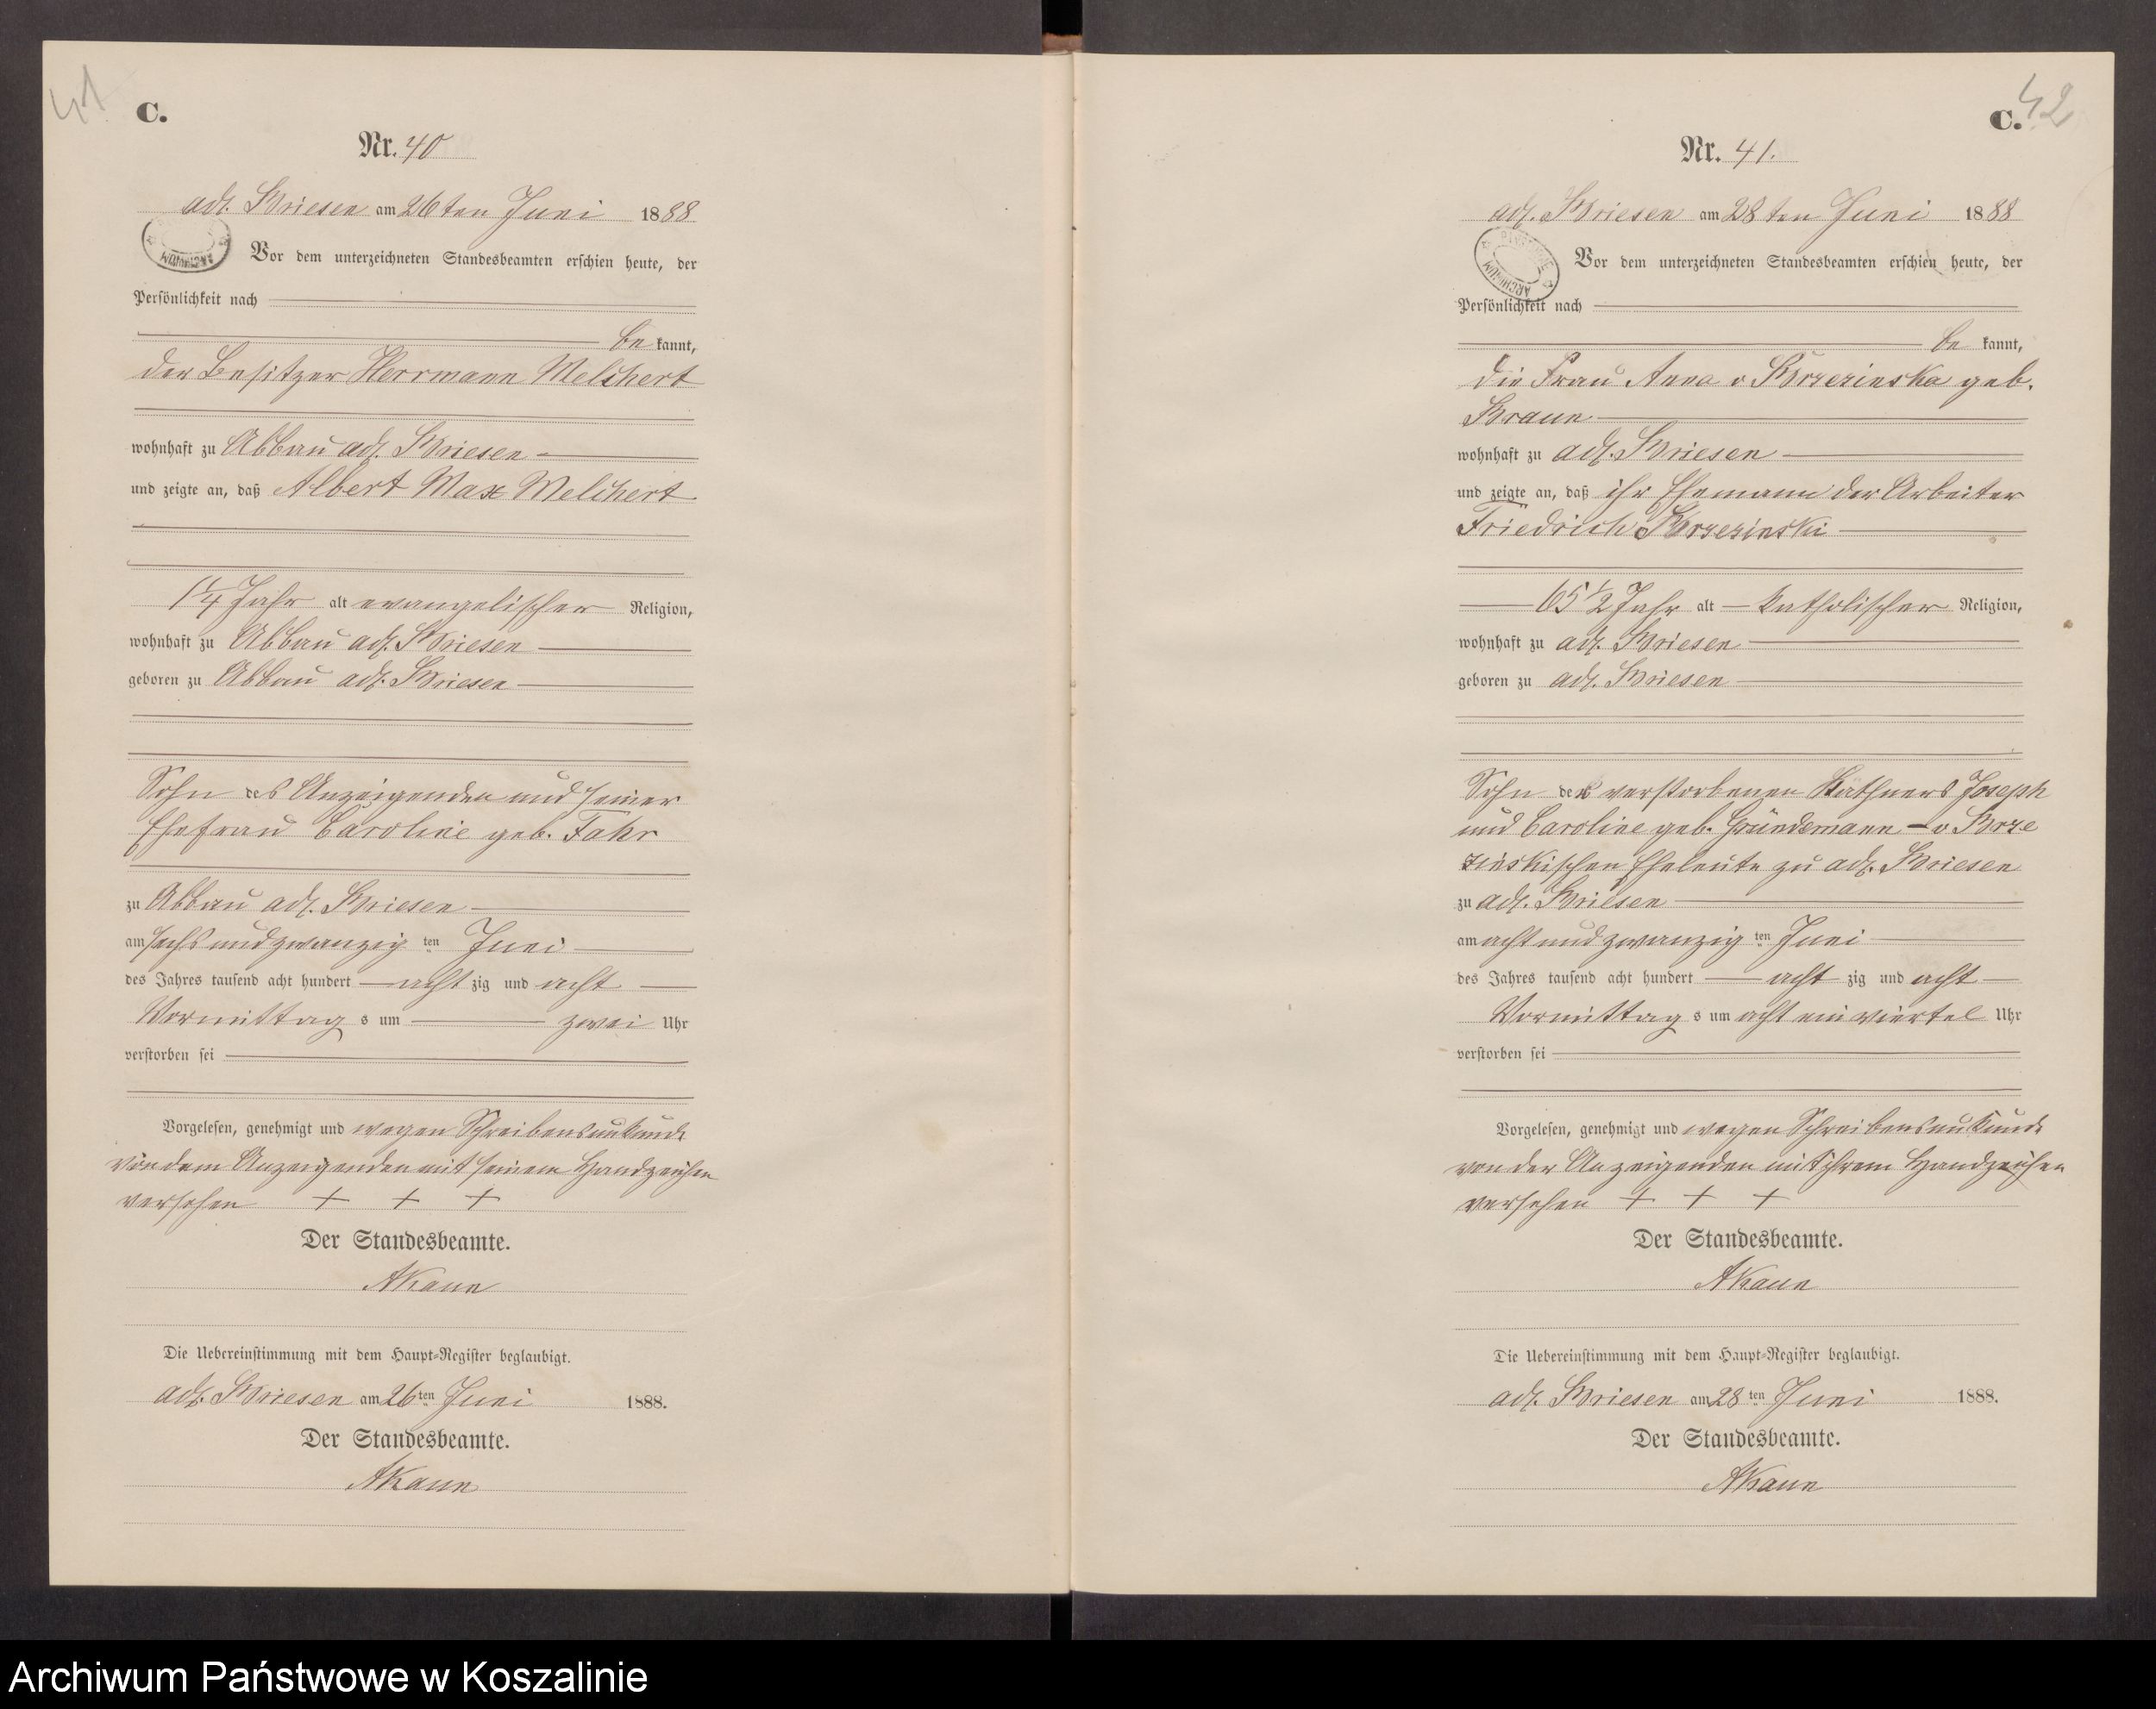 41
C.
Nr. 40
adl. Briesen am 26ten Juni 1888
ARCHIWUM
Vor dem unterzeichneten Standesbeamten erschien heute, der
Persönlichkeit nach
be kannt,
der Besitzer Herrmann Melchert
wohnhaft zu Abbau adl. Briesen
und zeigte an, daß Albert Max Melchert
1/4 Jahr alt evangelischer Religion,
wohnhaft zu Abbau adl. Briesen
geboren zu Abbau adl. Briesen
Sohn des Anzeigenden und seiner
Ehefrau Caroline geb. Fahr
zu Abbau adl. Briesen
am sechs und zwanzig ten Juni
des Jahres tausend acht hundert acht zig und acht
Vormittag s um zwei Uhr
verstorben sei
Vorgelesen, genehmigt und wegen Schreibensunkunde
von dem Anzeigenden mit seinem Handzeichen
versehen + + +
Der Standesbeamte.
AKaun
Die Uebereinstimmung mit dem Haupt-Register beglaubigt.
adl. Briesen am 26ten Juni 1888.
Der Standesbeamte.
AKaun
42
C.
Nr. 41.
adl. Briesen am 28ten Juni 1888
PAŃSTWOWE ARCHIWUM
Vor dem unterzeichneten Standesbeamten erschien heute, der
Persönlichkeit nach
be kannt,
die Frau Anna v Brzezinska geb.
Braun
wohnhaft zu adl. Briesen
und zeigte an, daß ihr Ehemann der Arbeiter
Friedrich Brzezinski
65 1/2 Jahr alt katholischer Religion,
wohnhaft zu adl. Briesen
geboren zu adl. Briesen
Sohn der verstorbenen Käthners Joseph
und Caroline geb. Gründemann - v Brze
zinskischen Eheleute zu adl. Briesen
zu adl. Briesen
am acht und zwanzig ten Juni
des Jahres tausend acht hundert acht zig und acht
Vormittag s um acht ein viertel Uhr
verstorben sei
Vorgelesen, genehmigt und wegen Schreibensunkunde
von der Anzeigenden mit ihrem Handzeichen
versehen + + +
Der Standesbeamte.
AKaun
Die Uebereinstimmung mit dem Haupt-Register beglaubigt.
adl. Briesen am 28ten Juni 1888.
Der Standesbeamte.
AKaun
Archiwum Państwowe w Koszalinie